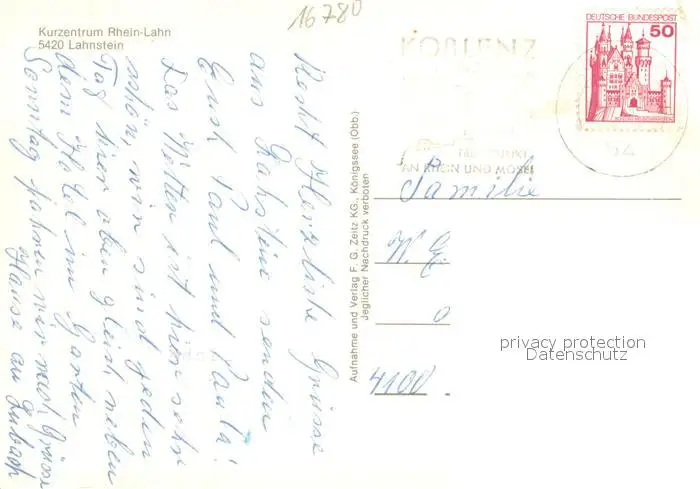 16780
Kurzentrum Rhein-Lahn
5420 Lahnstein
DEUTSCHE BUNDESPOST
50
KOBLENZ
TREFFPUNKT
AN RHEIN UND MOSEL
54
Recht Herzliche Grüsse
aus Lahnstein senden
Ernst Paul und Paula!
Das Wetter ist hier sehr
schön, wir sind jeden
Tag hier oben gleich neben
dem Hotel im Garten
Sonntag fahren wir nach
Hause
Grüsse
an
Aufnahme und Verlag F. G. Zeitz KG., Königssee (Obb.)
Jeglicher Nachdruck verboten
Familie
W. G
4100
privacy protection
Datenschutz